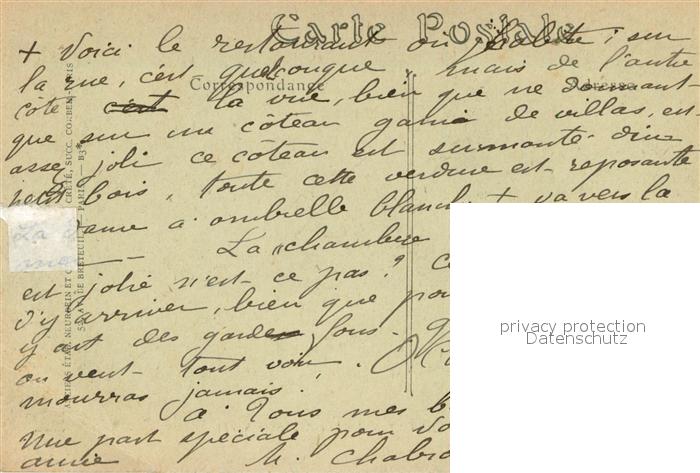 Carte Postale
Correspondance
Adresse
+ Voici le restaurant où ; sur
la rue, c'est quelconque mais de l'autre
côté c'est la vue, bien que ne donnant
que sur un côteau garni de villas, est
assez joli ce côteau est surmonté d'un
petit bois, toute cette verdure est reposante
La dame à ombrelle blanche + va vers la
La chambre
est jolie n'est-ce pas? C
d'y arriver, bien que pour
y ait des garde fous.
on veut tout voir.
mourras jamais!
à Tous mes b
Une part spéciale pour vo
amie M. Chabro
ANCIENS ÉTAB. NEURDEIN ET C CRÉTÉ, SUCC. CORBEIL-PARIS
52, AV. DE BRETEUIL — PARIS — B3
privacy protection
Datenschutz